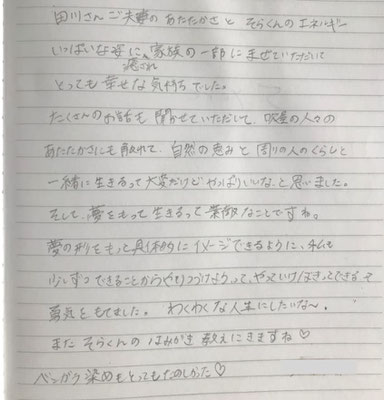 田川さんご夫妻のあたたかさと そらくんのエネルギー
いっぱいな姿に癒され、家族の一部に まぜていただいて
とっても 幸せな気持ちでした。
たくさんのお話も 聞かせていただいて、吹屋の人々の
あたたかさにも触れて、自然の恵みと 周りの人のくらしと
一緒に生きるって大変だけど やっぱりいいな、と思いました。
そして、夢をもって生きるって素敵なことですね。
夢の形をもって具体的にイメージできるように、私も
少しずつできることからやりつづけようって、やっていけばきっとできるって
勇気をもてました。 わくわくな人生にしたいな〜。
また そらくんの はみがき 教えにきますね♡
ベンガラ染めもとってもたのしかった♡